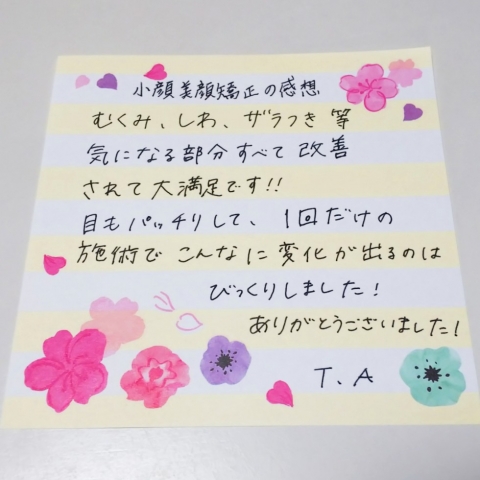 小顔美顔矯正の感想
むくみ、しわ、ザラつき 等
気になる部分すべて 改善
されて 大満足です!!
目もパッチリして、 1回だけの
施術で こんなに 変化が出るのは
びっくりしました!
ありがとうございました!
T.A